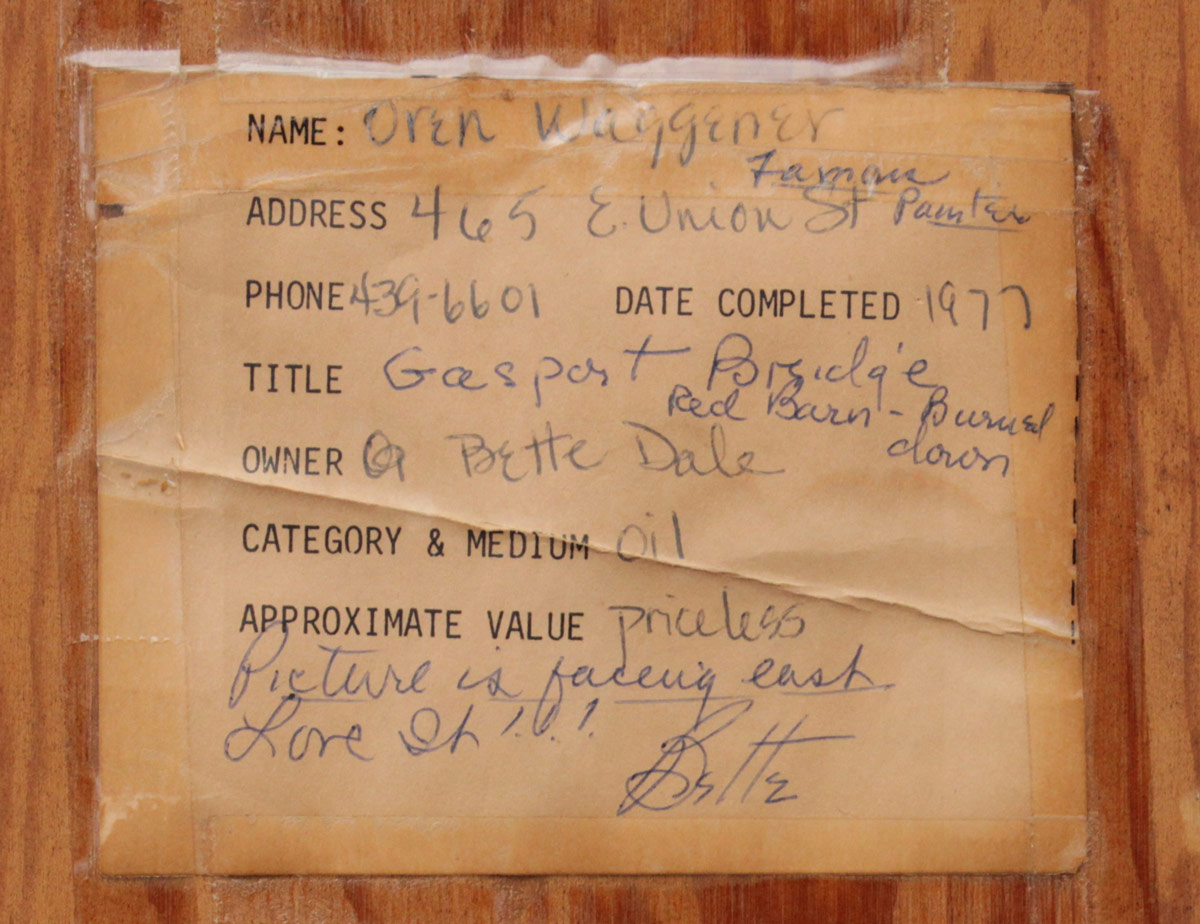 NAME: Oren Waggener
Famous
ADDRESS 465 E. Union St Painter
PHONE 439-6601 DATE COMPLETED 1977
TITLE Gasport Bridge
Red Barn - Burned
down
OWNER Bette Dale
CATEGORY & MEDIUM oil
APPROXIMATE VALUE priceless
Picture is facing east
Love It!!!
Bette